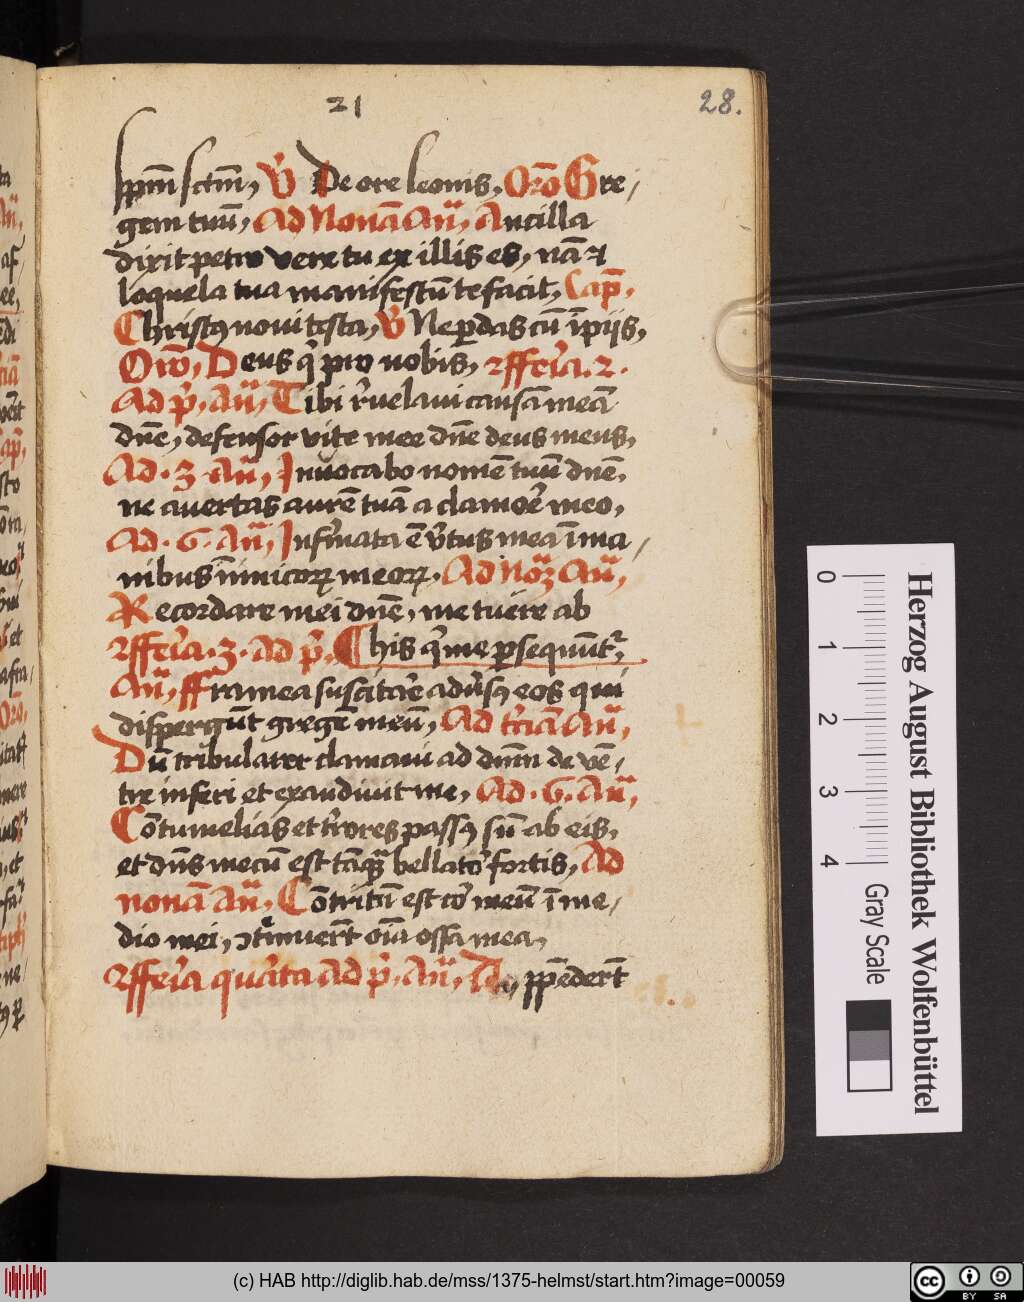 21
28.
ppm̄ sctm̄, V̄ De ore leonis, Oro᷑ Gre/
gem tuū, Ad Nonā Añ, Ancilla
dixit petro vere tu ex illis es, nā et
loquela tua manifestū te facit, Cap̄,
Christꝰ noui testa, V̄ Ne ꝑdas cū īpijs,
Orō, Deus q̇ pro nobis, 2ª fferia. 2.
Ad p̄. Añ, Tibi r̄uelaui causā meā
dn̄e, defensor vite mee dn̄e deus meus,
Ad. 3 Añ, Inuocabo nomē tuū dn̄e,
ne auertas aurē tuā a clamore meo,
Ad. 6. Añ, Infr̄mata ē v̄tus mea ī ma/
nibus inimicoꝝ meoꝝ. Ad Noᷓ Añ,
Recordare mei dn̄e, me tuere ab
fferia. 3. ad p̄. his q̄ me ꝑsequūt᷑,
Añ, fframea suscitare adūsꝰ eos qui
disperḡut gregē meū, Ad tr̄ciā Añ,
Dū tribularer clamaui ad dnm̄ de vē/
tre inferi et exaudiuit me, Ad. 6. Añ,
Cōtumelias et tr̄ores passꝰ sū ab eis,
et dn̄s mecū est tāqꝫ bellator fortis, Ad
nonā Añ, Cōtritū est cor meū ī me/
dio mei, ↄtremuer̄t oīa ossa mea,
fferia quarta ad p̄. Añ, ppēder̄t
Herzog August Bibliothek Wolfenbüttel
0 1 2 3 4
Gray Scale
(c) HAB http://diglib.hab.de/mss/1375-helmst/start.htm?image=00059
cc BY SA